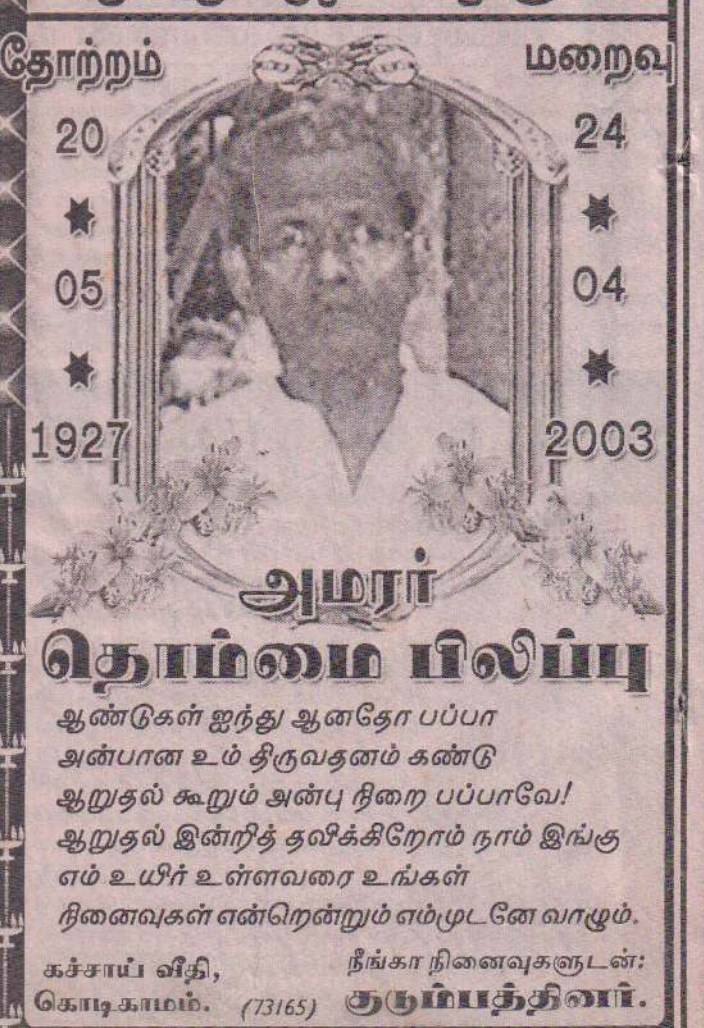 தோற்றம்
20
05
1927
மறைவு
24
04
2003
அமரர்
தொம்மை பிலிப்பு
ஆண்டுகள் ஐந்து ஆனதோ பப்பா
அன்பான உம் திருவதனம் கண்டு
ஆறுதல் கூறும் அன்பு நிறை பப்பாவே!
ஆறுதல் இன்றித் தவிக்கிறோம் நாம் இங்கு
எம் உயிர் உள்ளவரை உங்கள்
நினைவுகள் என்றென்றும் எம்முடனே வாழும்.
கச்சாய் வீதி,
கொடிகாமம். (73165)
நீங்கா நினைவுகளுடன்:
குடும்பத்தினர்.